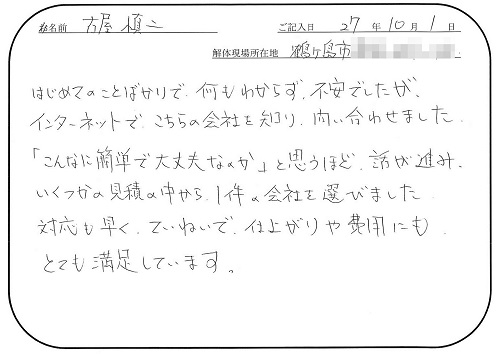 お名前 古屋 慎二 ご記入日 27年10月1日
解体現場所在地 鶴ヶ島市
はじめてのことばかりで、何もわからず、不安でしたが、
インターネットで、こちらの会社を知り、問い合わせました。
「こんなに簡単で大丈夫なのか」と思うほど、話が進み、
いくつかの見積の中から、1件の会社を選びました。
対応も早く、ていねいで、仕上がりや費用にも、
とても満足しています。